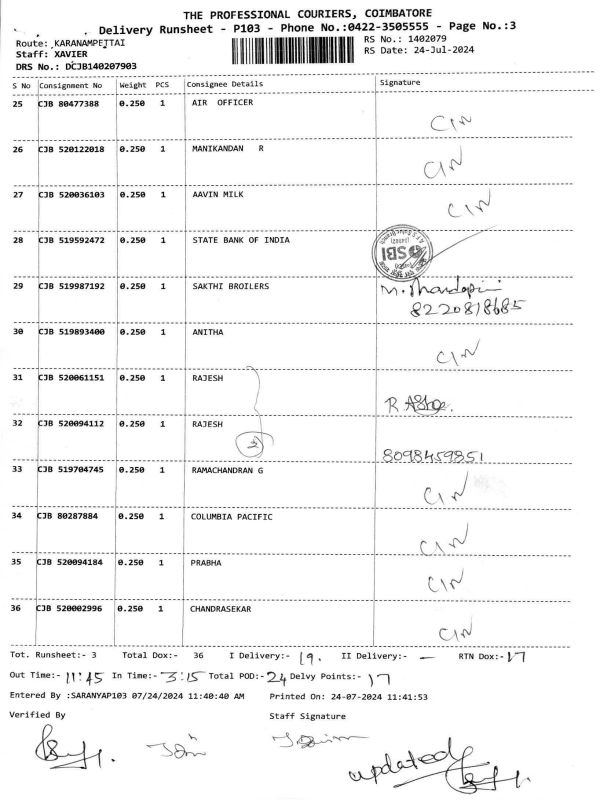 THE PROFESSIONAL COURIERS, COIMBATORE
Delivery Runsheet - P103 - Phone No.:0422-3505555 - Page No.:3
Route: KARANAMPETTAI RS No.: 1402079
Staff: XAVIER RS Date: 24-Jul-2024
DRS No.: DCJB140207903
S No Consignment No Weight PCS Consignee Details Signature
25 CJB 80477388 0.250 1 AIR OFFICER
26 CJB 520122018 0.250 1 MANIKANDAN R
27 CJB 520036103 0.250 1 AAVIN MILK
28 CJB 519592472 0.250 1 STATE BANK OF INDIA SBI
29 CJB 519987192 0.250 1 SAKTHI BROILERS
8220818685
30 CJB 519893400 0.250 1 ANITHA
31 CJB 520061151 0.250 1 RAJESH
32 CJB 520094112 0.250 1 RAJESH
2 8098459851
33 CJB 519704745 0.250 1 RAMACHANDRAN G
34 CJB 80287884 0.250 1 COLUMBIA PACIFIC
35 CJB 520094184 0.250 1 PRABHA
36 CJB 520002996 0.250 1 CHANDRASEKAR
Tot. Runsheet:- 3 Total Dox:- 36 I Delivery:- 19. II Delivery:- — RTN Dox:- 17
Out Time:- 11:45 In Time:- 3:15 Total POD:- 24 Delvy Points:- 17
Entered By :SARANYAP103 07/24/2024 11:40:40 AM Printed On: 24-07-2024 11:41:53
Verified By Staff Signature
updated